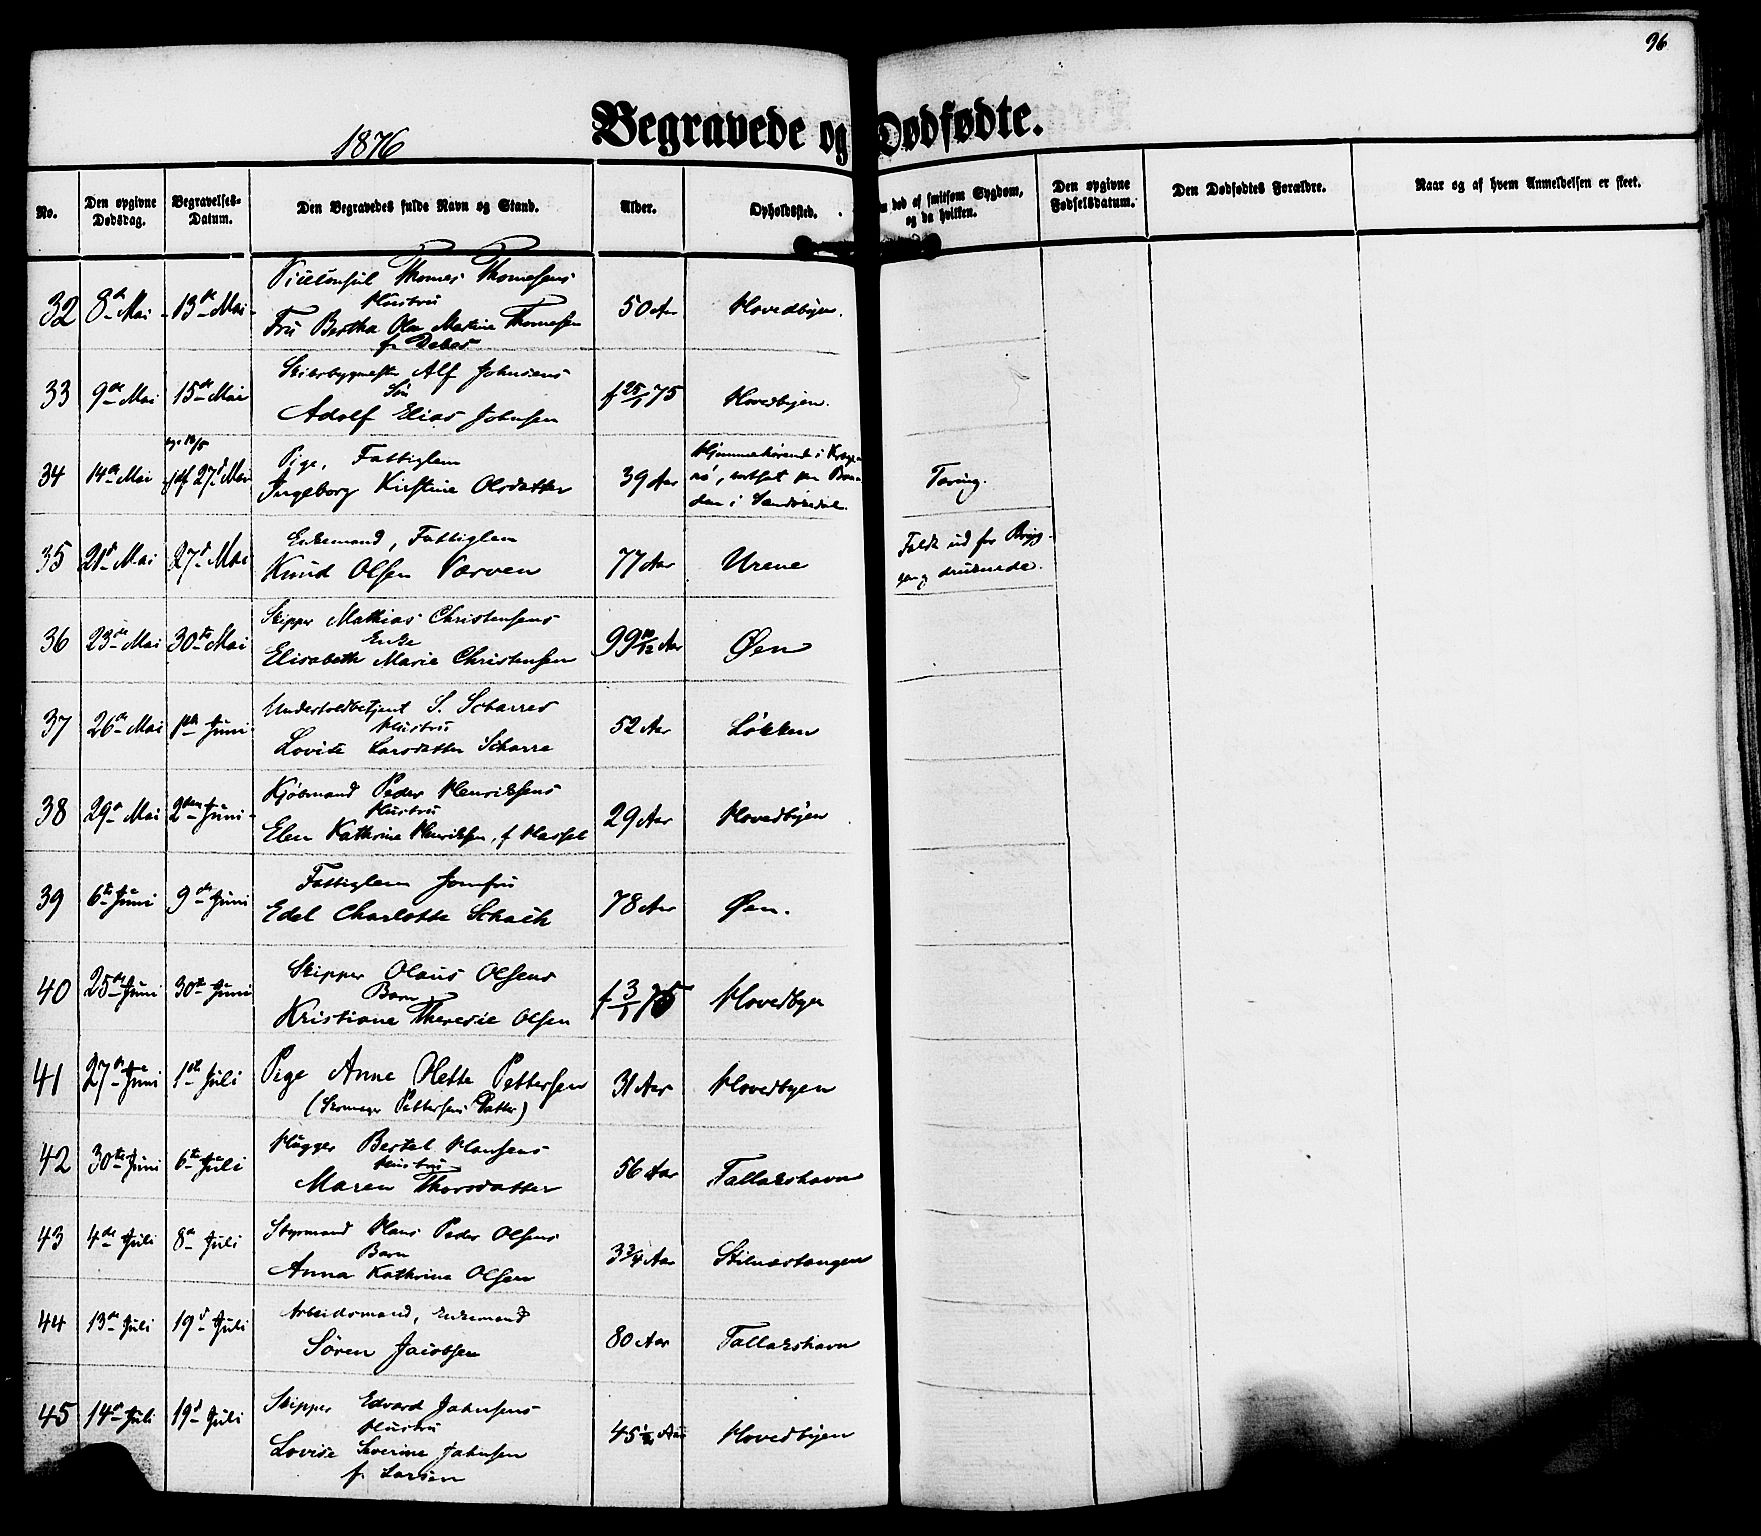 96
Begravede og Dødfødte.
1876
No.
Den opgivne Dødsdag.
Begravelses-Datum.
Den Begravedes fulde Navn og Stand.
Alder.
Opholdssted.
død af smitsom Sygdom, og da hvilken.
Den opgivne Fødselsdatum.
Den Dødfødtes Forældre.
Naar og af hvem Anmeldelsen er skeet.
32 8de Mai 13de Mai 50 Aar Hovedbyen.
Viceconsul Thomas Thomesens
Hustru
Fru Bertha Martine Thomesen
f. Debes
33 9de Mai 15de Mai f 25/1 75 Hovedbyen.
Alf Johnsens
Søn
Adolf Elias Johnsen
34 14de Mai 27d Mai 39 Aar
Hjemmehørende i Krage-
rø, bortsat paa
den i Sandøkedal.
Tæring.
Pige, Fattiglem
Ingeborg Kirstine Olsdatter
35 21d Mai 27d Mai 77 Aar Urene
Faldt ud for Brygg-
og druknede.
Enkemand, Fattiglem
Knud Olsen Varven
36 23de Mai 30te Mai 99 10/12 Aar Øen
Skipper Mathias Christensens
Enke
Elisabeth Marie Christensen
37 26de Mai 1ste Juni 52 Aar Løkken
Undertoldbetjent S. Scharres
Hustru
Lovise Larsdatter Scharre
38 29d Mai 2den Juni 29 Aar Hovedbyen
Kjøbmand Peder Henriksens
Hustru
Elen Kathrine Henriksen, f Hassel
39 6te Juni 9de Juni 78 Aar Øen.
Fattiglem Jomfru
Edel Charlotte Schach
40 25de Juni 30te Juni f 3/1 75 Hovedbyen
Skipper Olaus Olsens
Barn
Kristiane Theresie Olsen
41 27de Juni 1ste Juli 31 Aar Hovedbyen
Pige Anne Mette Pettersen
(Skomager Pettersens Datter)
42 30te Juni 6te Juli 56 Aar Tallakshavn
Hugger Bertel Hansens
Hustru
Maren Thorsdatter
43 4de Juli 8de Juli 3 3/4 Aar Stilnæstangen
Styrmand Hans Peder Olsens
Barn
Anna Kathrine Olsen
44 13de Juli 19d Juli 80 Aar Tallakshavn
Arbeidsmand, Enkemand
Søren Jacobsen
45 14d Juli 19d Juli 45 1/2 Aar Hovedbyen
Skipper Edvard Johnsens
Hustru
Lovise Severine Johnsen
f. Larsen